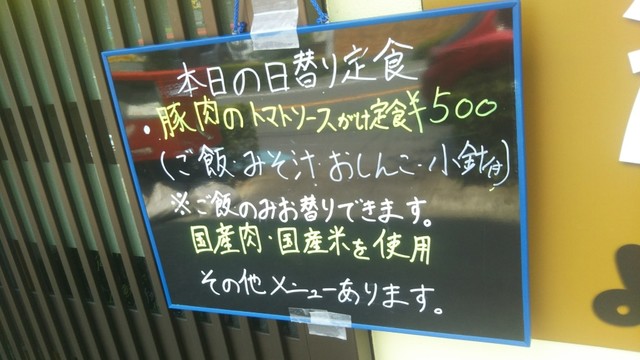 本日の日替り定食
・豚肉のトマトソースがけ定食¥500
(ご飯・みそ汁・おしんこ・小鉢付)
※ご飯のみお替りできます。
国産肉・国産米を使用
その他メニューあります。